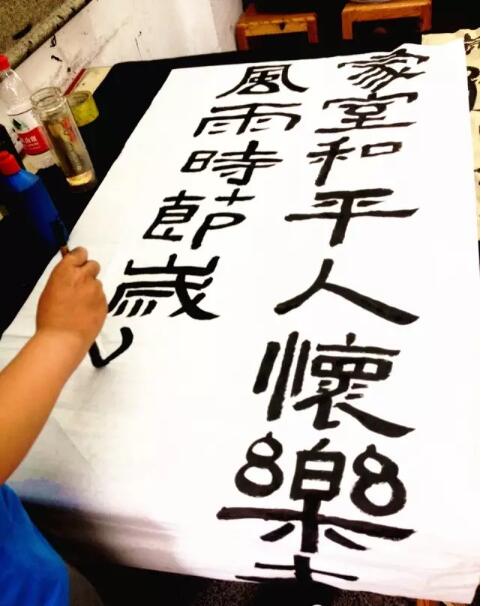 家室和平人懷樂
風雨時節歲